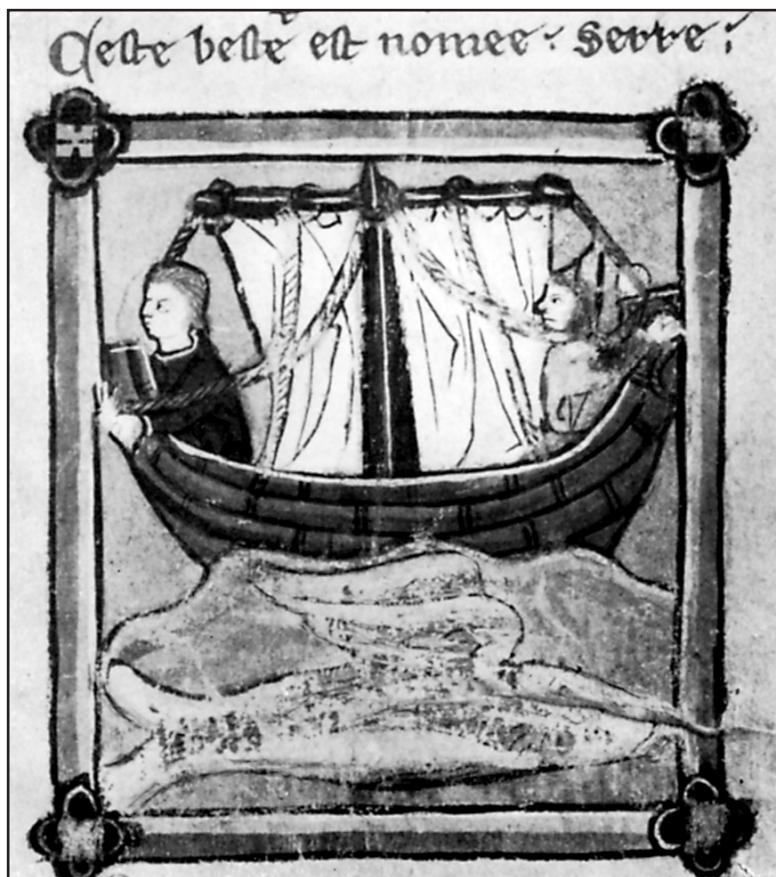 Ceste beste est nomee. Serre.